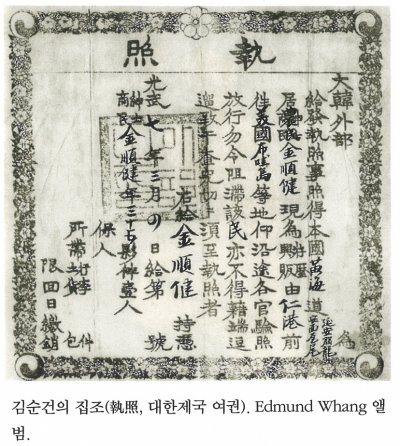 執照
大韓外部 為
給發執照事照得本國黃海道
居 民金順健 現為 興販由仁港前
往美國布哇島等地仰沿途各官驗照
放行勿令阻滯該民亦不得藉端逗
遛致干 究切 須至執照者
右給金順健 持憑
光武七年三月 日給第 號
紳士
商民 金順健年三十 伴壹人
保人
所帶行李 件
貨 包
限回日繳銷
김순건의 집조(執照, 대한제국 여권). Edmund Whang 앨
범.